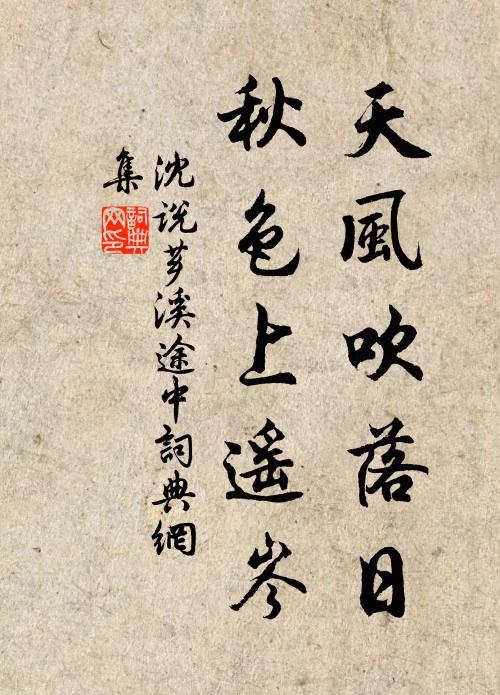 天風吹落日
秋色上遥岑
沈说苕溪途中詞典網
集
詞典
网印